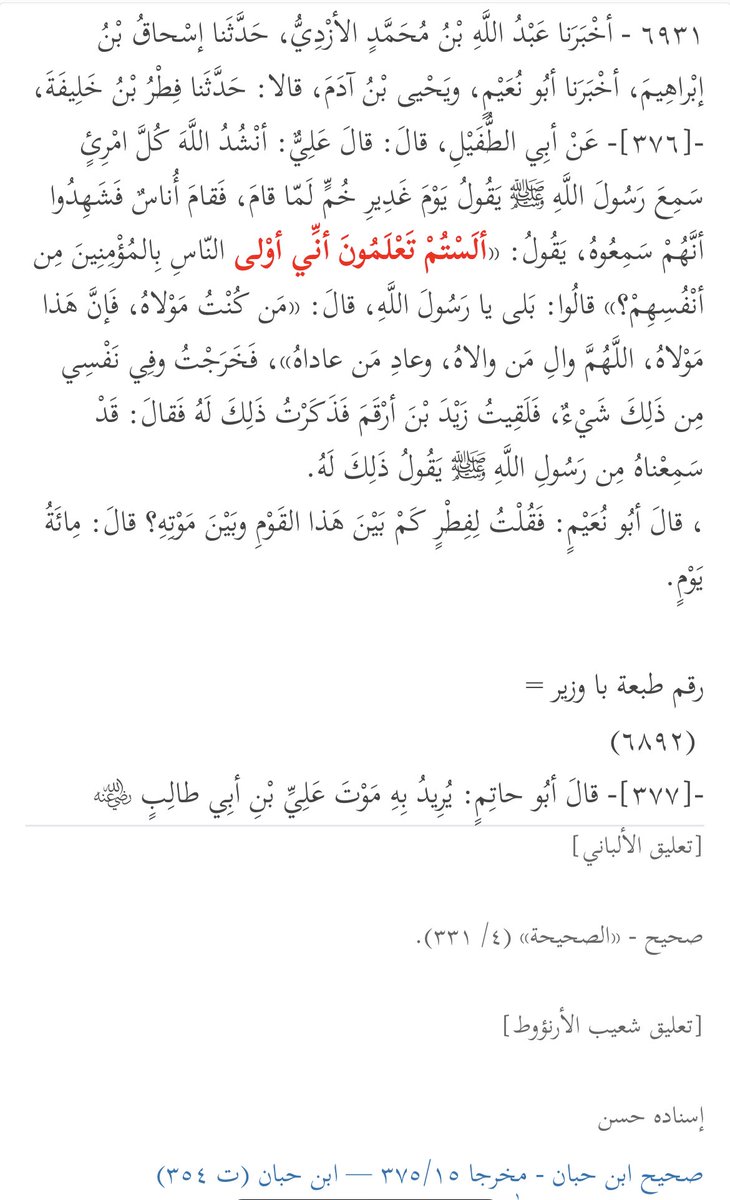 ٦٩٣١ - أخْبَرَنا عَبْدُ اللَّهِ بْنُ مُحَمَّدٍ الأزْدِيُّ، حَدَّثَنا إسْحاقُ بْنُ
إبْراهِيمَ، أخْبَرَنا أبُو نُعَيْمٍ، ويَحْيى بْنُ آدَمَ، قالا: حَدَّثَنا فِطْرُ بْنُ خَلِيفَةَ،
-[٣٧٦]- عَنْ أبِي الطُّفَيْلِ، قالَ: قالَ عَلِيٌّ: أنْشُدُ اللَّهَ كُلَّ امْرِئٍ
سَمِعَ رَسُولَ اللَّهِ ﷺ يَقُولُ يَوْمَ غَدِيرِ خُمٍّ لَمّا قامَ، فَقامَ أُناسٌ فَشَهِدُوا
أنَّهُمْ سَمِعُوهُ، يَقُولُ: «ألَسْتُمْ تَعْلَمُونَ أنِّي أوْلى النّاسِ بِالمُؤْمِنِينَ مِن
أنْفُسِهِمْ؟» قالُوا: بَلى يا رَسُولَ اللَّهِ، قالَ: «مَن كُنْتُ مَوْلاهُ، فَإنَّ هَذا
مَوْلاهُ، اللَّهُمَّ والِ مَن والاهُ، وعادِ مَن عاداهُ»، فَخَرَجْتُ وفِي نَفْسِي
مِن ذَلِكَ شَيْءٌ، فَلَقِيتُ زَيْدَ بْنَ أرْقَمَ فَذَكَرْتُ ذَلِكَ لَهُ فَقالَ: قَدْ
سَمِعْناهُ مِن رَسُولِ اللَّهِ ﷺ يَقُولُ ذَلِكَ لَهُ.
، قالَ أبُو نُعَيْمٍ: فَقُلْتُ لِفِطْرٍ كَمْ بَيْنَ هَذا القَوْمِ وبَيْنَ مَوْتِهِ؟ قالَ: مِائَةُ
يَوْمٍ.
رقم طبعة با وزير =
(٦٨٩٢)
-[٣٧٧]- قالَ أبُو حاتِمٍ: يُرِيدُ بِهِ مَوْتَ عَلِيِّ بْنِ أبِي طالِبٍ رضي الله عنه
[تعليق الألباني]
صحيح - «الصحيحة» (٤/ ٣٣١).
[تعليق شعيب الأرنؤوط]
إسناده حسن
صحيح ابن حبان - مخرجا ٣٧٥/١٥ — ابن حبان (ت ٣٥٤)